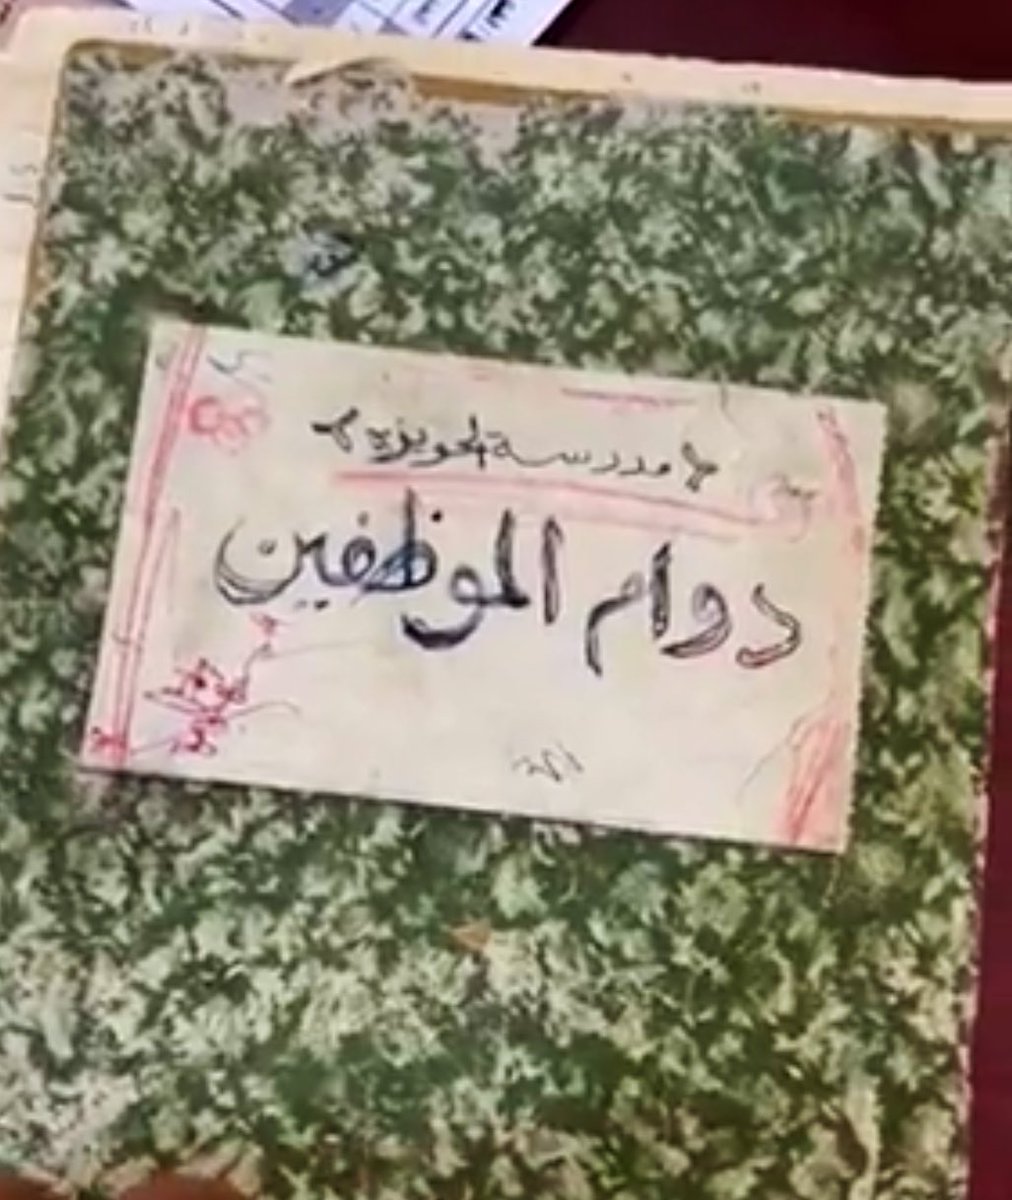 مدرسة الحويزه
دوام الموظفين